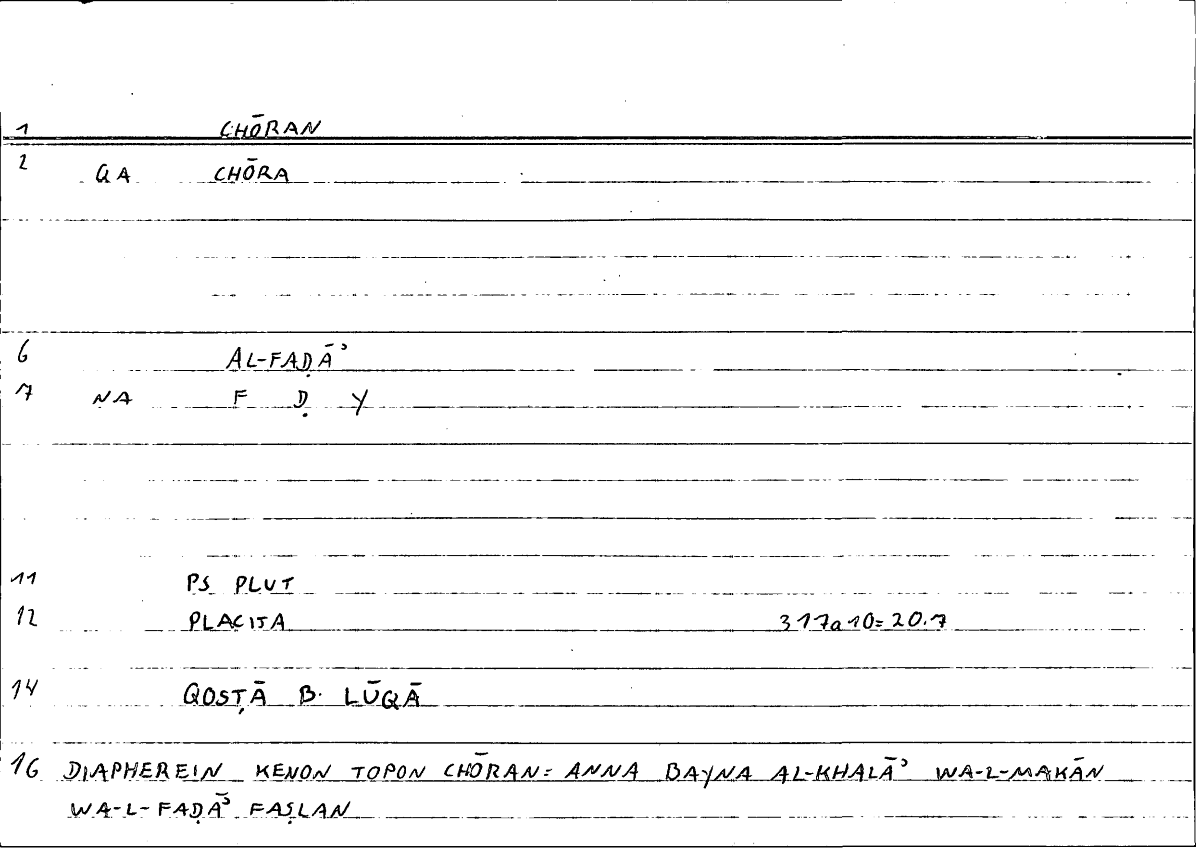 1 CHŌRAN
2 QA CHŌRA
6 AL-FAḌĀʾ
7 NA F Ḍ Y
11 PS PLUT
12 PLACITA 317a10=20.7
14 QOSṬĀ B. LŪQĀ
16 DIAPHEREIN KENON TOPON CHŌRAN = ANNA BAYNA AL-KHALĀʾ WA-L-MAKĀN
WA-L-FAḌĀʾ FAṢLAN